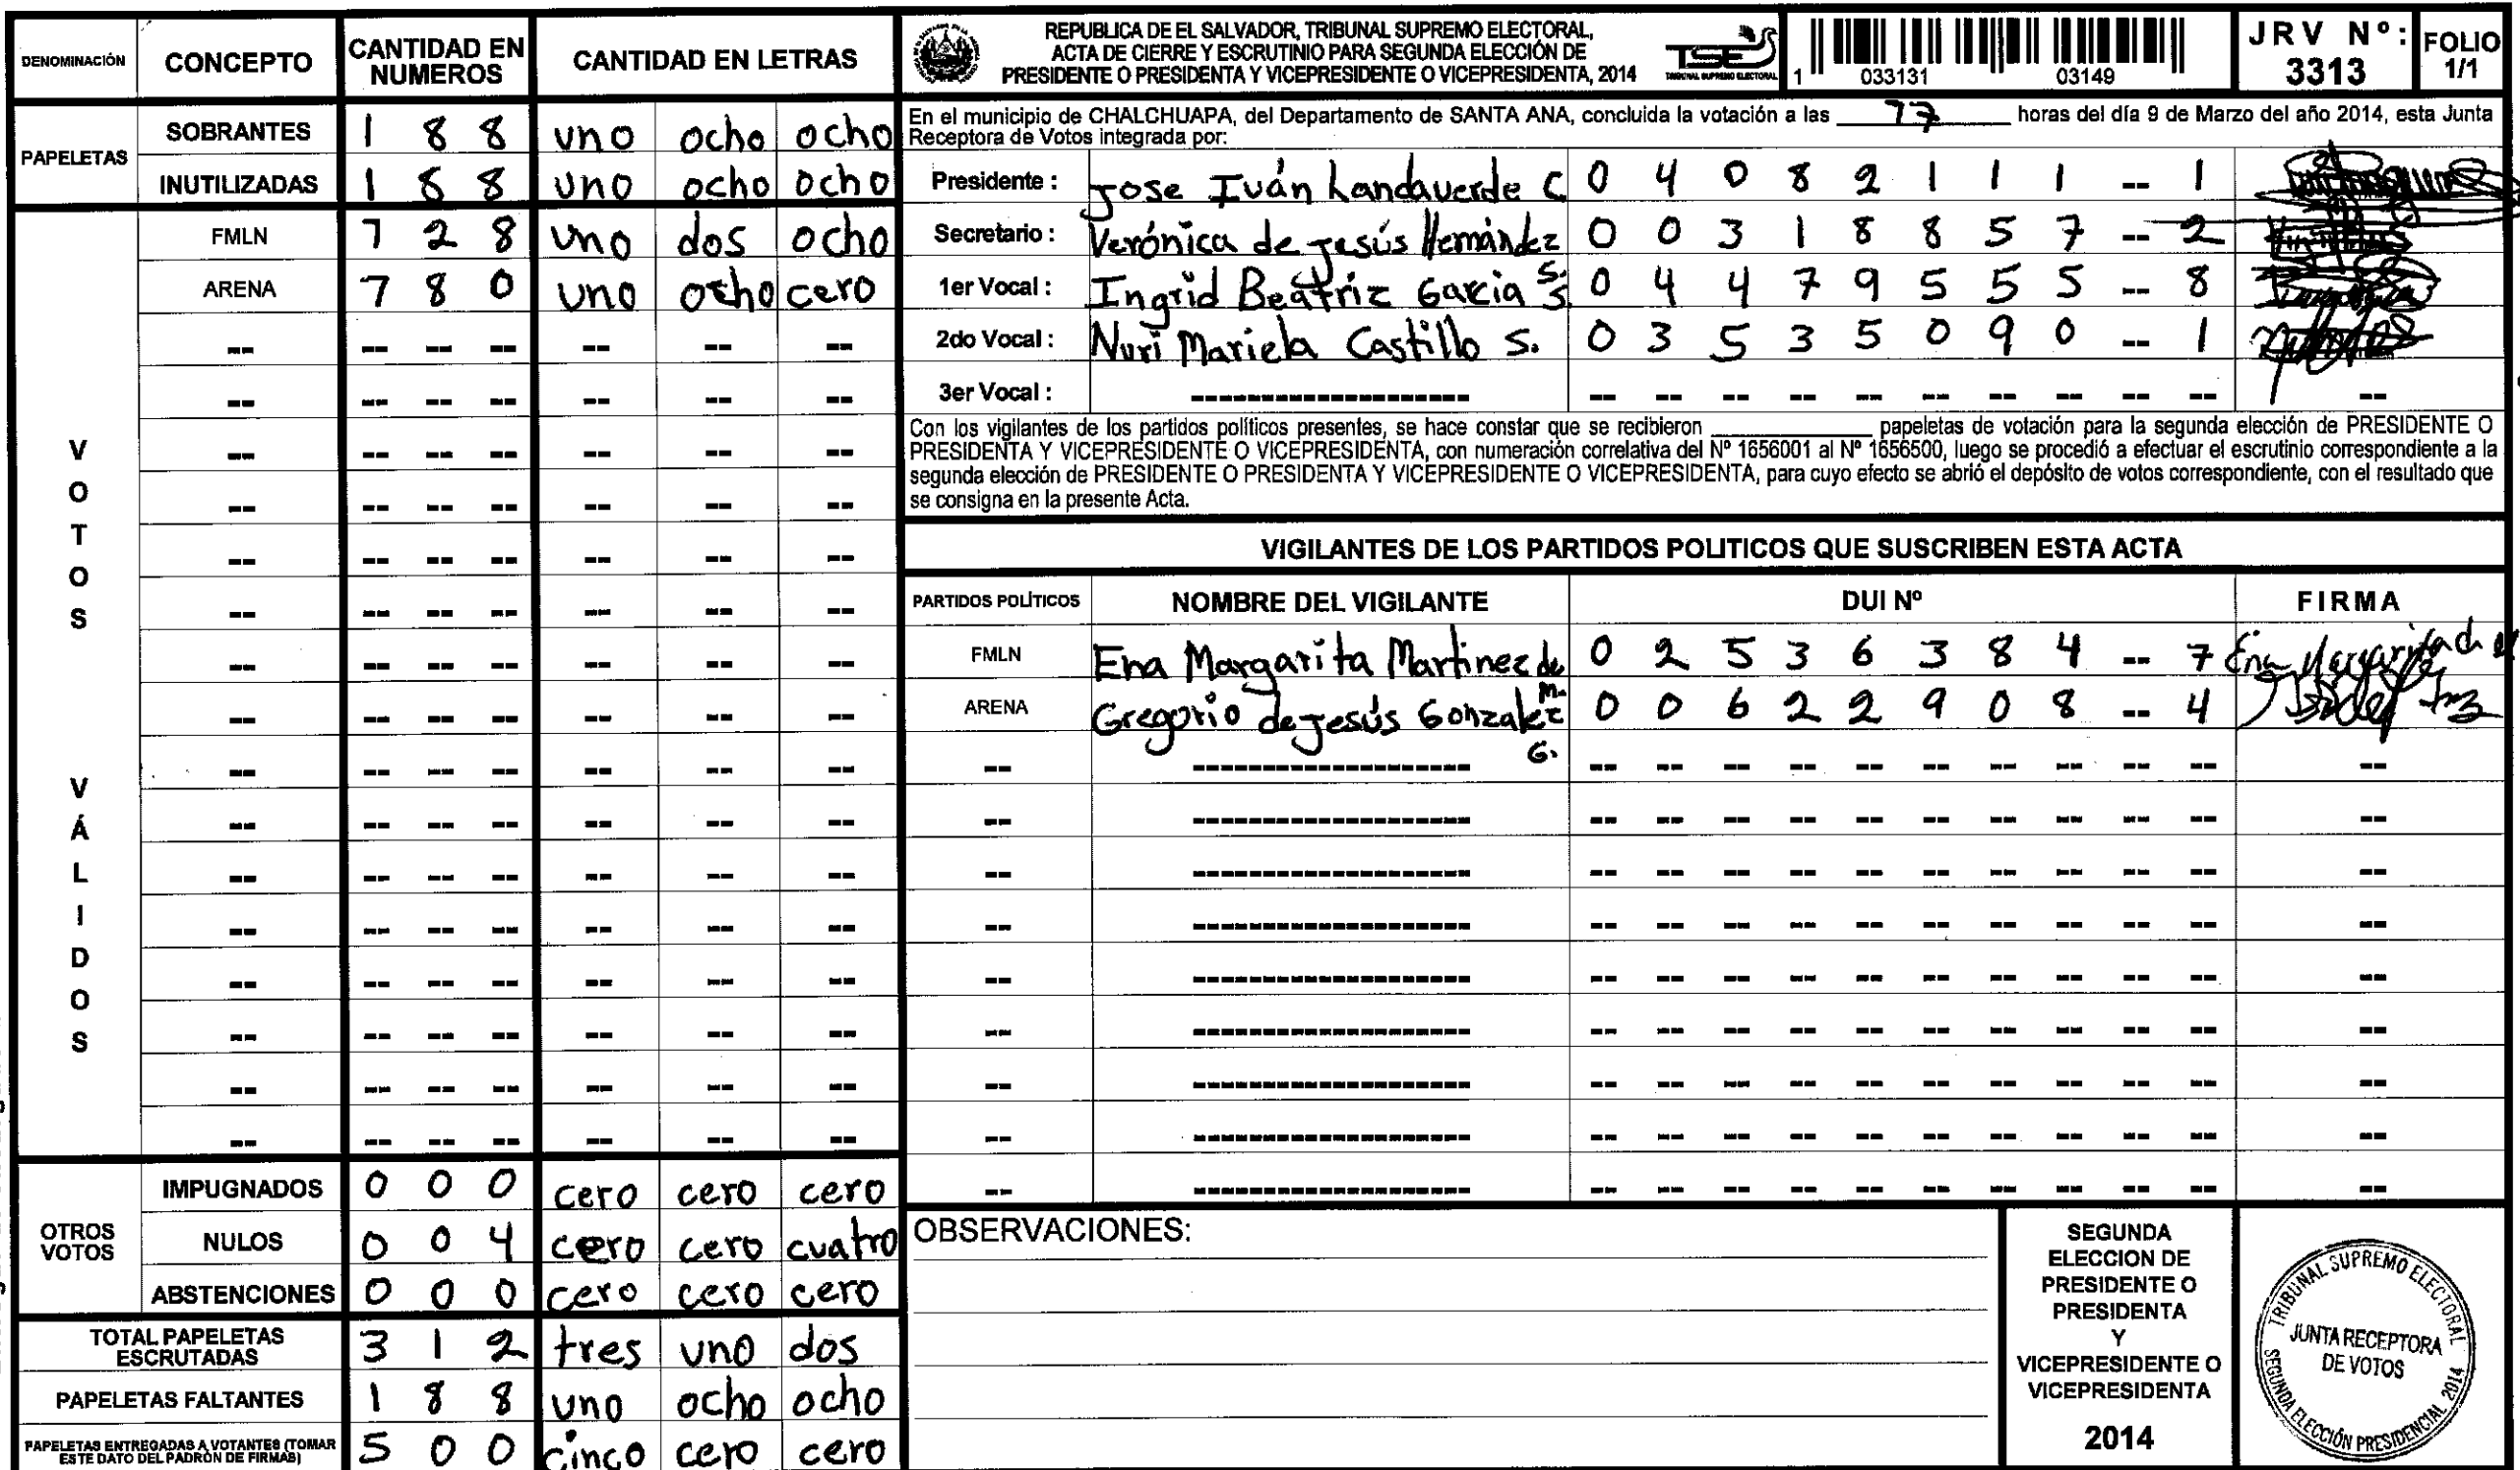 DENOMINACIÓN CONCEPTO CANTIDAD EN NUMEROS CANTIDAD EN LETRAS
PAPELETAS
SOBRANTES 1 8 8 uno ocho ocho
INUTILIZADAS 1 8 8 uno ocho ocho
VOTOS VÁLIDOS
FMLN 1 2 8 uno dos ocho
ARENA 1 8 0 uno ocho cero
OTROS VOTOS
IMPUGNADOS 0 0 0 cero cero cero
NULOS 0 0 4 cero cero cuatro
ABSTENCIONES 0 0 0 cero cero cero
TOTAL PAPELETAS ESCRUTADAS 3 1 2 tres uno dos
PAPELETAS FALTANTES 1 8 8 uno ocho ocho
PAPELETAS ENTREGADAS A VOTANTES (TOMAR ESTE DATO DEL PADRÓN DE FIRMAS) 5 0 0 cinco cero cero
REPUBLICA DE EL SALVADOR, TRIBUNAL SUPREMO ELECTORAL,
ACTA DE CIERRE Y ESCRUTINIO PARA SEGUNDA ELECCIÓN DE
PRESIDENTE O PRESIDENTA Y VICEPRESIDENTE O VICEPRESIDENTA, 2014
TSE
TRIBUNAL SUPREMO ELECTORAL
1 033131 03149
JRV Nº: 3313
FOLIO 1/1
En el municipio de CHALCHUAPA, del Departamento de SANTA ANA, concluida la votación a las 17 horas del día 9 de Marzo del año 2014, esta Junta
Receptora de Votos integrada por:
Presidente : Jose Iván Landaverde C 0 4 0 8 2 1 1 1 -- 1
Secretario : Verónica de Jesús Hernández 0 0 3 1 8 8 5 7 -- 2
1er Vocal : Ingrid Beatriz Garcia S. 0 4 4 7 9 5 5 5 -- 8
2do Vocal : Nuri Mariela Castillo S. 0 3 5 3 5 0 9 0 -- 1
3er Vocal :
Con los vigilantes de los partidos políticos presentes, se hace constar que se recibieron ____ papeletas de votación para la segunda elección de PRESIDENTE O
PRESIDENTA Y VICEPRESIDENTE O VICEPRESIDENTA, con numeración correlativa del Nº 1656001 al Nº 1656500, luego se procedió a efectuar el escrutinio correspondiente a la
segunda elección de PRESIDENTE O PRESIDENTA Y VICEPRESIDENTE O VICEPRESIDENTA, para cuyo efecto se abrió el depósito de votos correspondiente, con el resultado que
se consigna en la presente Acta.
VIGILANTES DE LOS PARTIDOS POLITICOS QUE SUSCRIBEN ESTA ACTA
PARTIDOS POLÍTICOS NOMBRE DEL VIGILANTE DUI Nº FIRMA
FMLN Ena Margarita Martinez de M. 0 2 5 3 6 3 8 4 -- 7 Ena Margarita de
ARENA Gregorio de Jesús Gonzalez G. 0 0 6 2 2 9 0 8 -- 4
OBSERVACIONES:
SEGUNDA
ELECCION DE
PRESIDENTE O
PRESIDENTA
Y
VICEPRESIDENTE O
VICEPRESIDENTA
2014
TRIBUNAL SUPREMO ELECTORAL
JUNTA RECEPTORA
DE VOTOS
SEGUNDA ELECCIÓN PRESIDENCIAL 2014